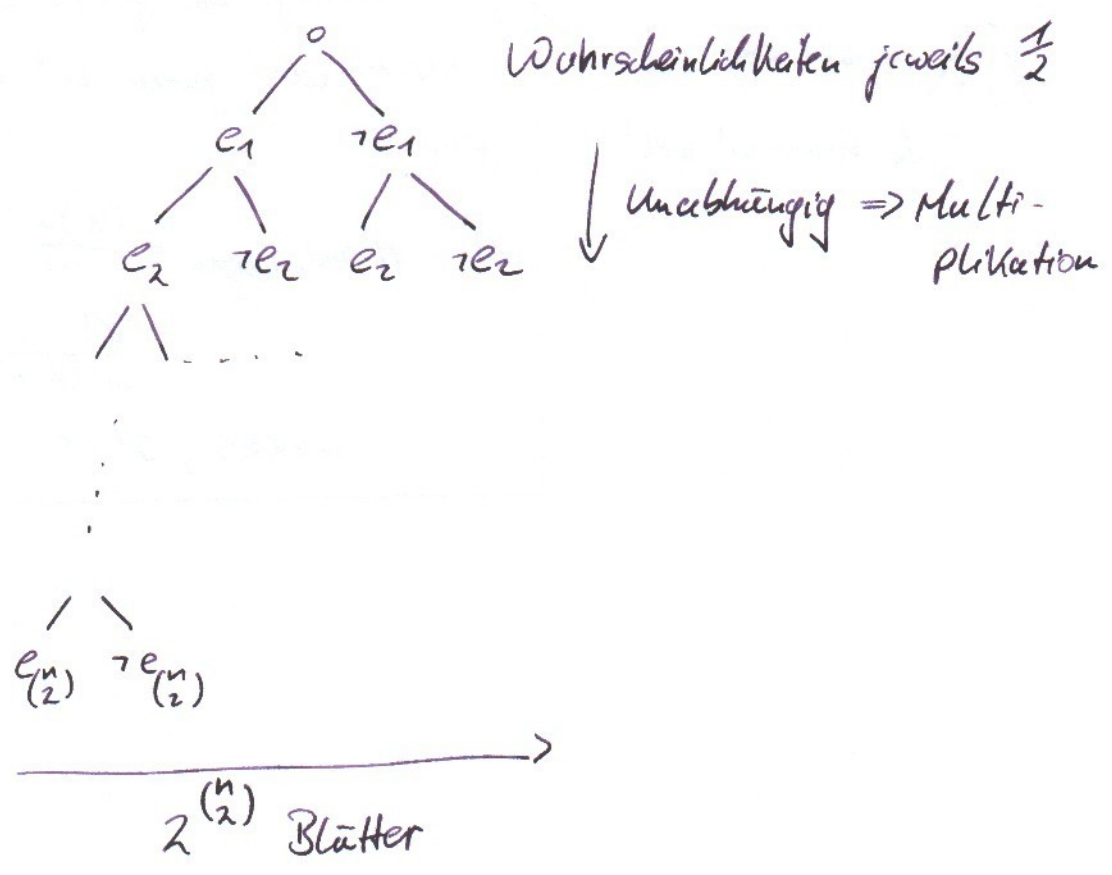 o
Wahrscheinlichkeiten jeweils 1/2
e₁ ¬e₁
Unabhängig ⇒ Multi-
plikation
e₂ ¬e₂ e₂ ¬e₂
e_(n 2) ¬e_(n 2)
2^(n 2) Blätter